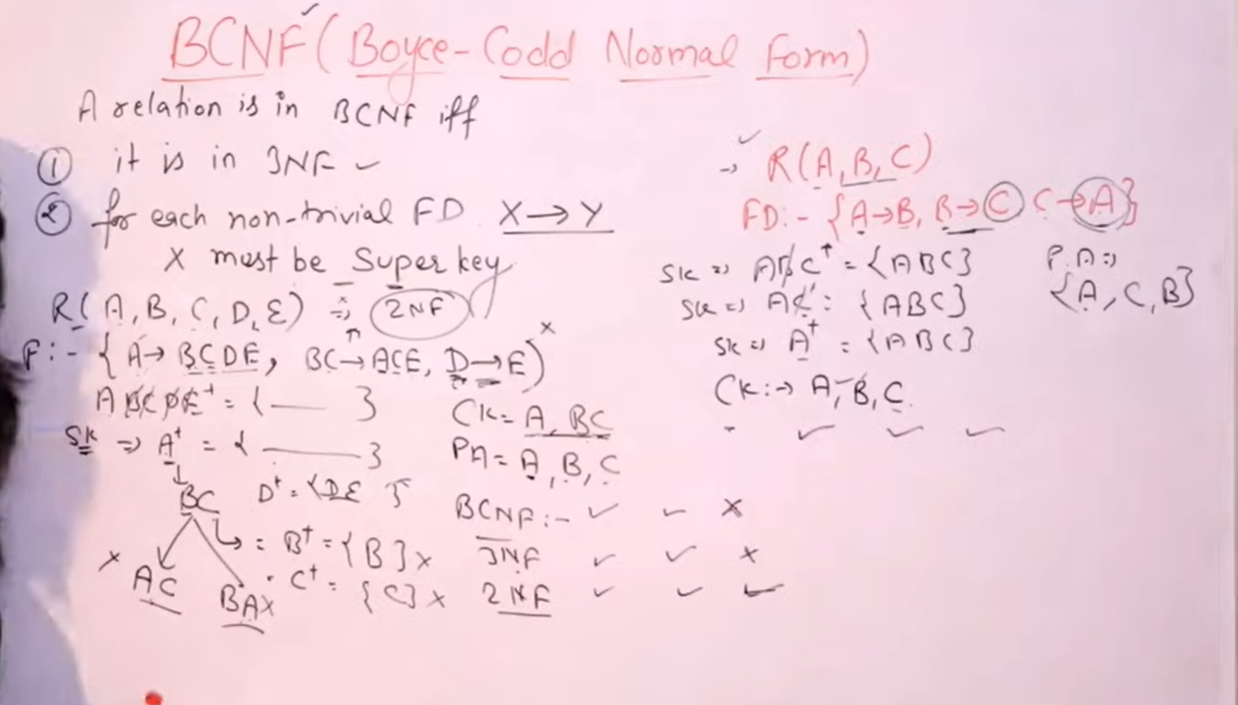 BCNF (Boyce-Codd Normal Form)
A relation is in BCNF iff
① it is in 3NF ✓
② for each non-trivial FD X→Y
X must be Super key
R(A, B, C, D, E) ⇒ 2NF
F:- { A→BCDE, BC→ACE, D→E} x
ABCDE⁺ = { — }
SK ⇒ A⁺ = { — }
BC D⁺ = {DE }
↳ = B⁺ = {B} x
x AC BAx C⁺ = {C} x
CK = A, BC
PA = A, B, C
BCNF:- ✓ ✓ x
3NF ✓ ✓ x
2NF ✓ ✓ ✓
→ R(A, B, C)
FD:- {A→B, B→C C→A}
SK ⇒ ABC⁺ = {ABC}
SK ⇒ AC⁺ : {ABC}
SK ⇒ A⁺ = {ABC}
CK:→ A, B, C.
✓ ✓ ✓
P.A ⇒
{A, C, B}